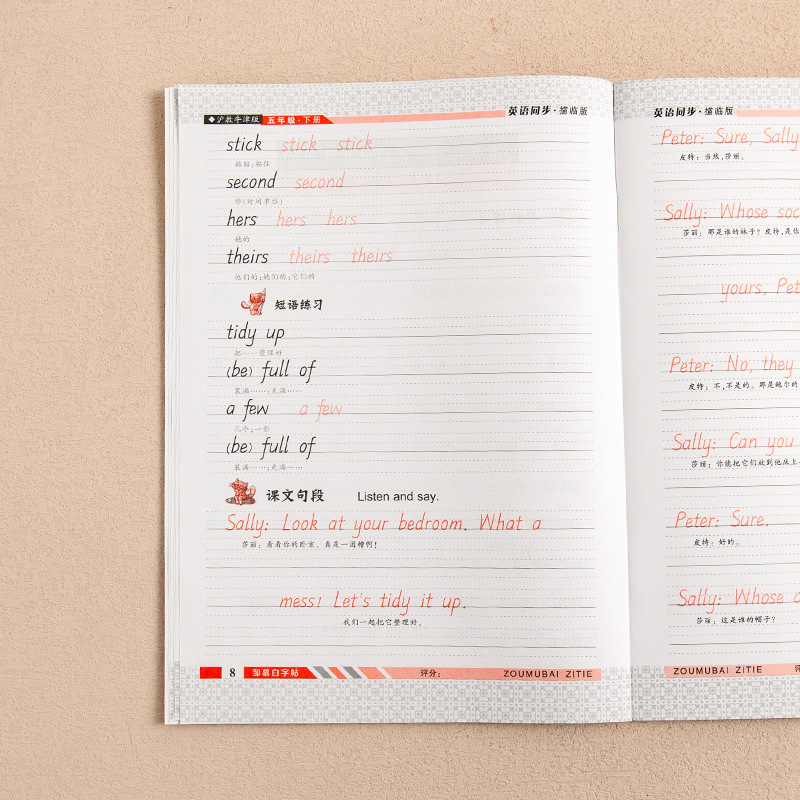 ◆沪教牛津版 五年级·下册 英语同步·描临版
stick stick stick
粘贴;粘住
second second
秒(时间单位)
hers hers hers
她的
theirs theirs theirs
他们的;她们的;它们的
短语练习
tidy up
把……整理好
(be) full of
装满……;充满……
a few a few
几个;一些
(be) full of
装满……;充满……
课文句段 Listen and say.
Sally: Look at your bedroom. What a
莎丽：看看你的卧室。真是一团糟啊!
mess! Let's tidy it up.
我们一起把它整理好。
8 邹慕白字帖 评分： ZOUMUBAI ZITIE
英语同步·描临版
Peter: Sure, Sally
皮特：当然,莎丽。
Sally: Whose soc
莎丽：那是谁的袜子? 皮特,是你
yours, Pet
Peter: No, they
皮特：不,不是的。那是鲍尔的
Sally: Can you
莎丽：你能把它们放到他床上
Peter: Sure.
皮特：好的。
Sally: Whose
莎丽：这是谁的帽子?
ZOUMUBAI ZITIE